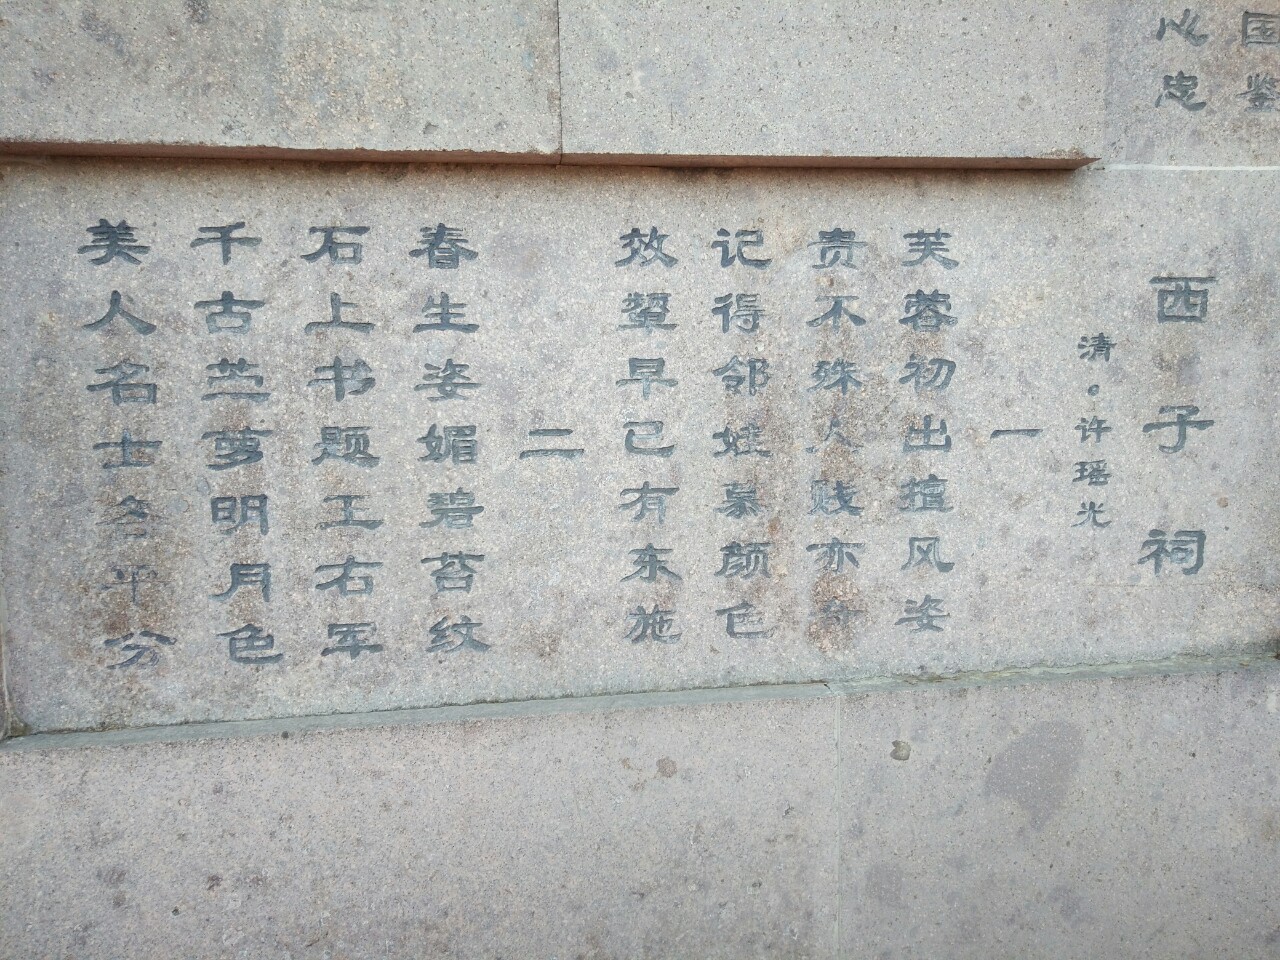 国鉴
心忠
西子祠
清。许瑶光
一
芙蓉初出擅风姿
贵不殊人贱亦奇
记得邻娃慕颜色
效颦早已有东施
二
春生姿媚碧苔纹
石上书题王右军
千古苎萝明月色
美人名士各平分